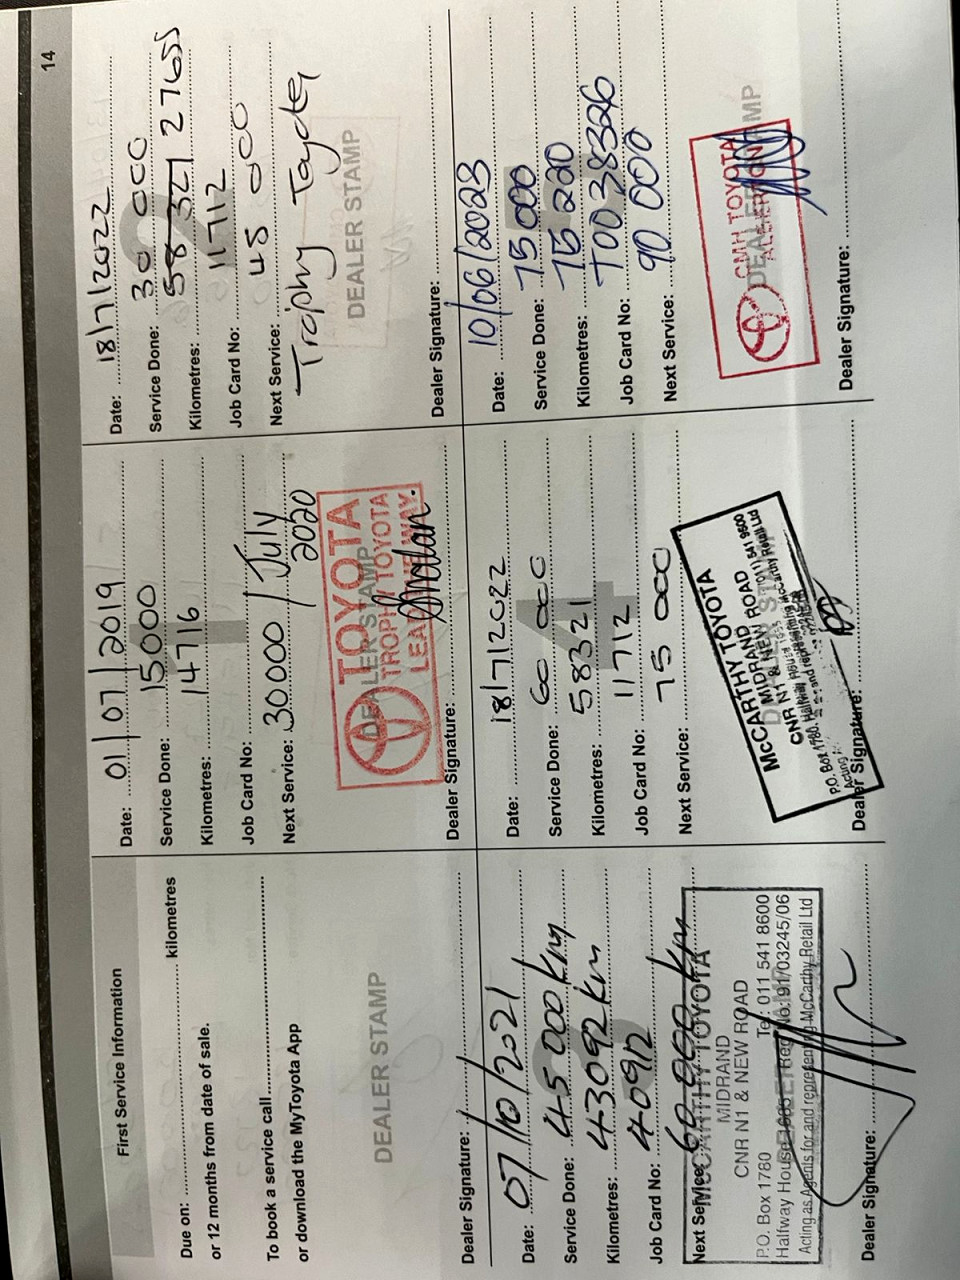 14
First Service Information
Due on: kilometres
or 12 months from date of sale.
To book a service call
or download the MyToyota App
DEALER STAMP
Dealer Signature:
Date: 01/07/2019
Service Done: 15000
Kilometres: 14716
Job Card No:
Next Service: 30000 / July
2020
1
DEALER STAMP
TOYOTA
TROPHY TOYOTA
Dealer Signature:
Date: 18/7/2022
Service Done: 30 000
Kilometres: 58 321 27655
Job Card No: 11712
Next Service: 45 000
2
Trophy Toyota
DEALER STAMP
Dealer Signature:
Date: 07/10/2021
Service Done: 45 000 km
Kilometres: 43092 km
Job Card No: 40912
Next Service: 60 000 km
3
McCARTHY TOYOTA
MIDRAND
CNR N1 & NEW ROAD
P.O. Box 1780 Tel: 011 541 8600
Halfway House 1685 Reg No: 91/03245/06
Acting as Agents for and representing McCarthy Retail Ltd
Dealer Signature:
Date: 18/7/2022
Service Done: 60 000
Kilometres: 58321
Job Card No: 11712
Next Service: 75 000
4
McCARTHY TOYOTA
MIDRAND
CNR N1 & NEW ROAD
P.O. Box 1780, Halfway House
Dealer Signature:
Date: 10/06/2023
Service Done: 75 000
Kilometres: 75 220
Job Card No: T0038326
Next Service: 90 000
CMH TOYOTA
DEALER STAMP
Dealer Signature: